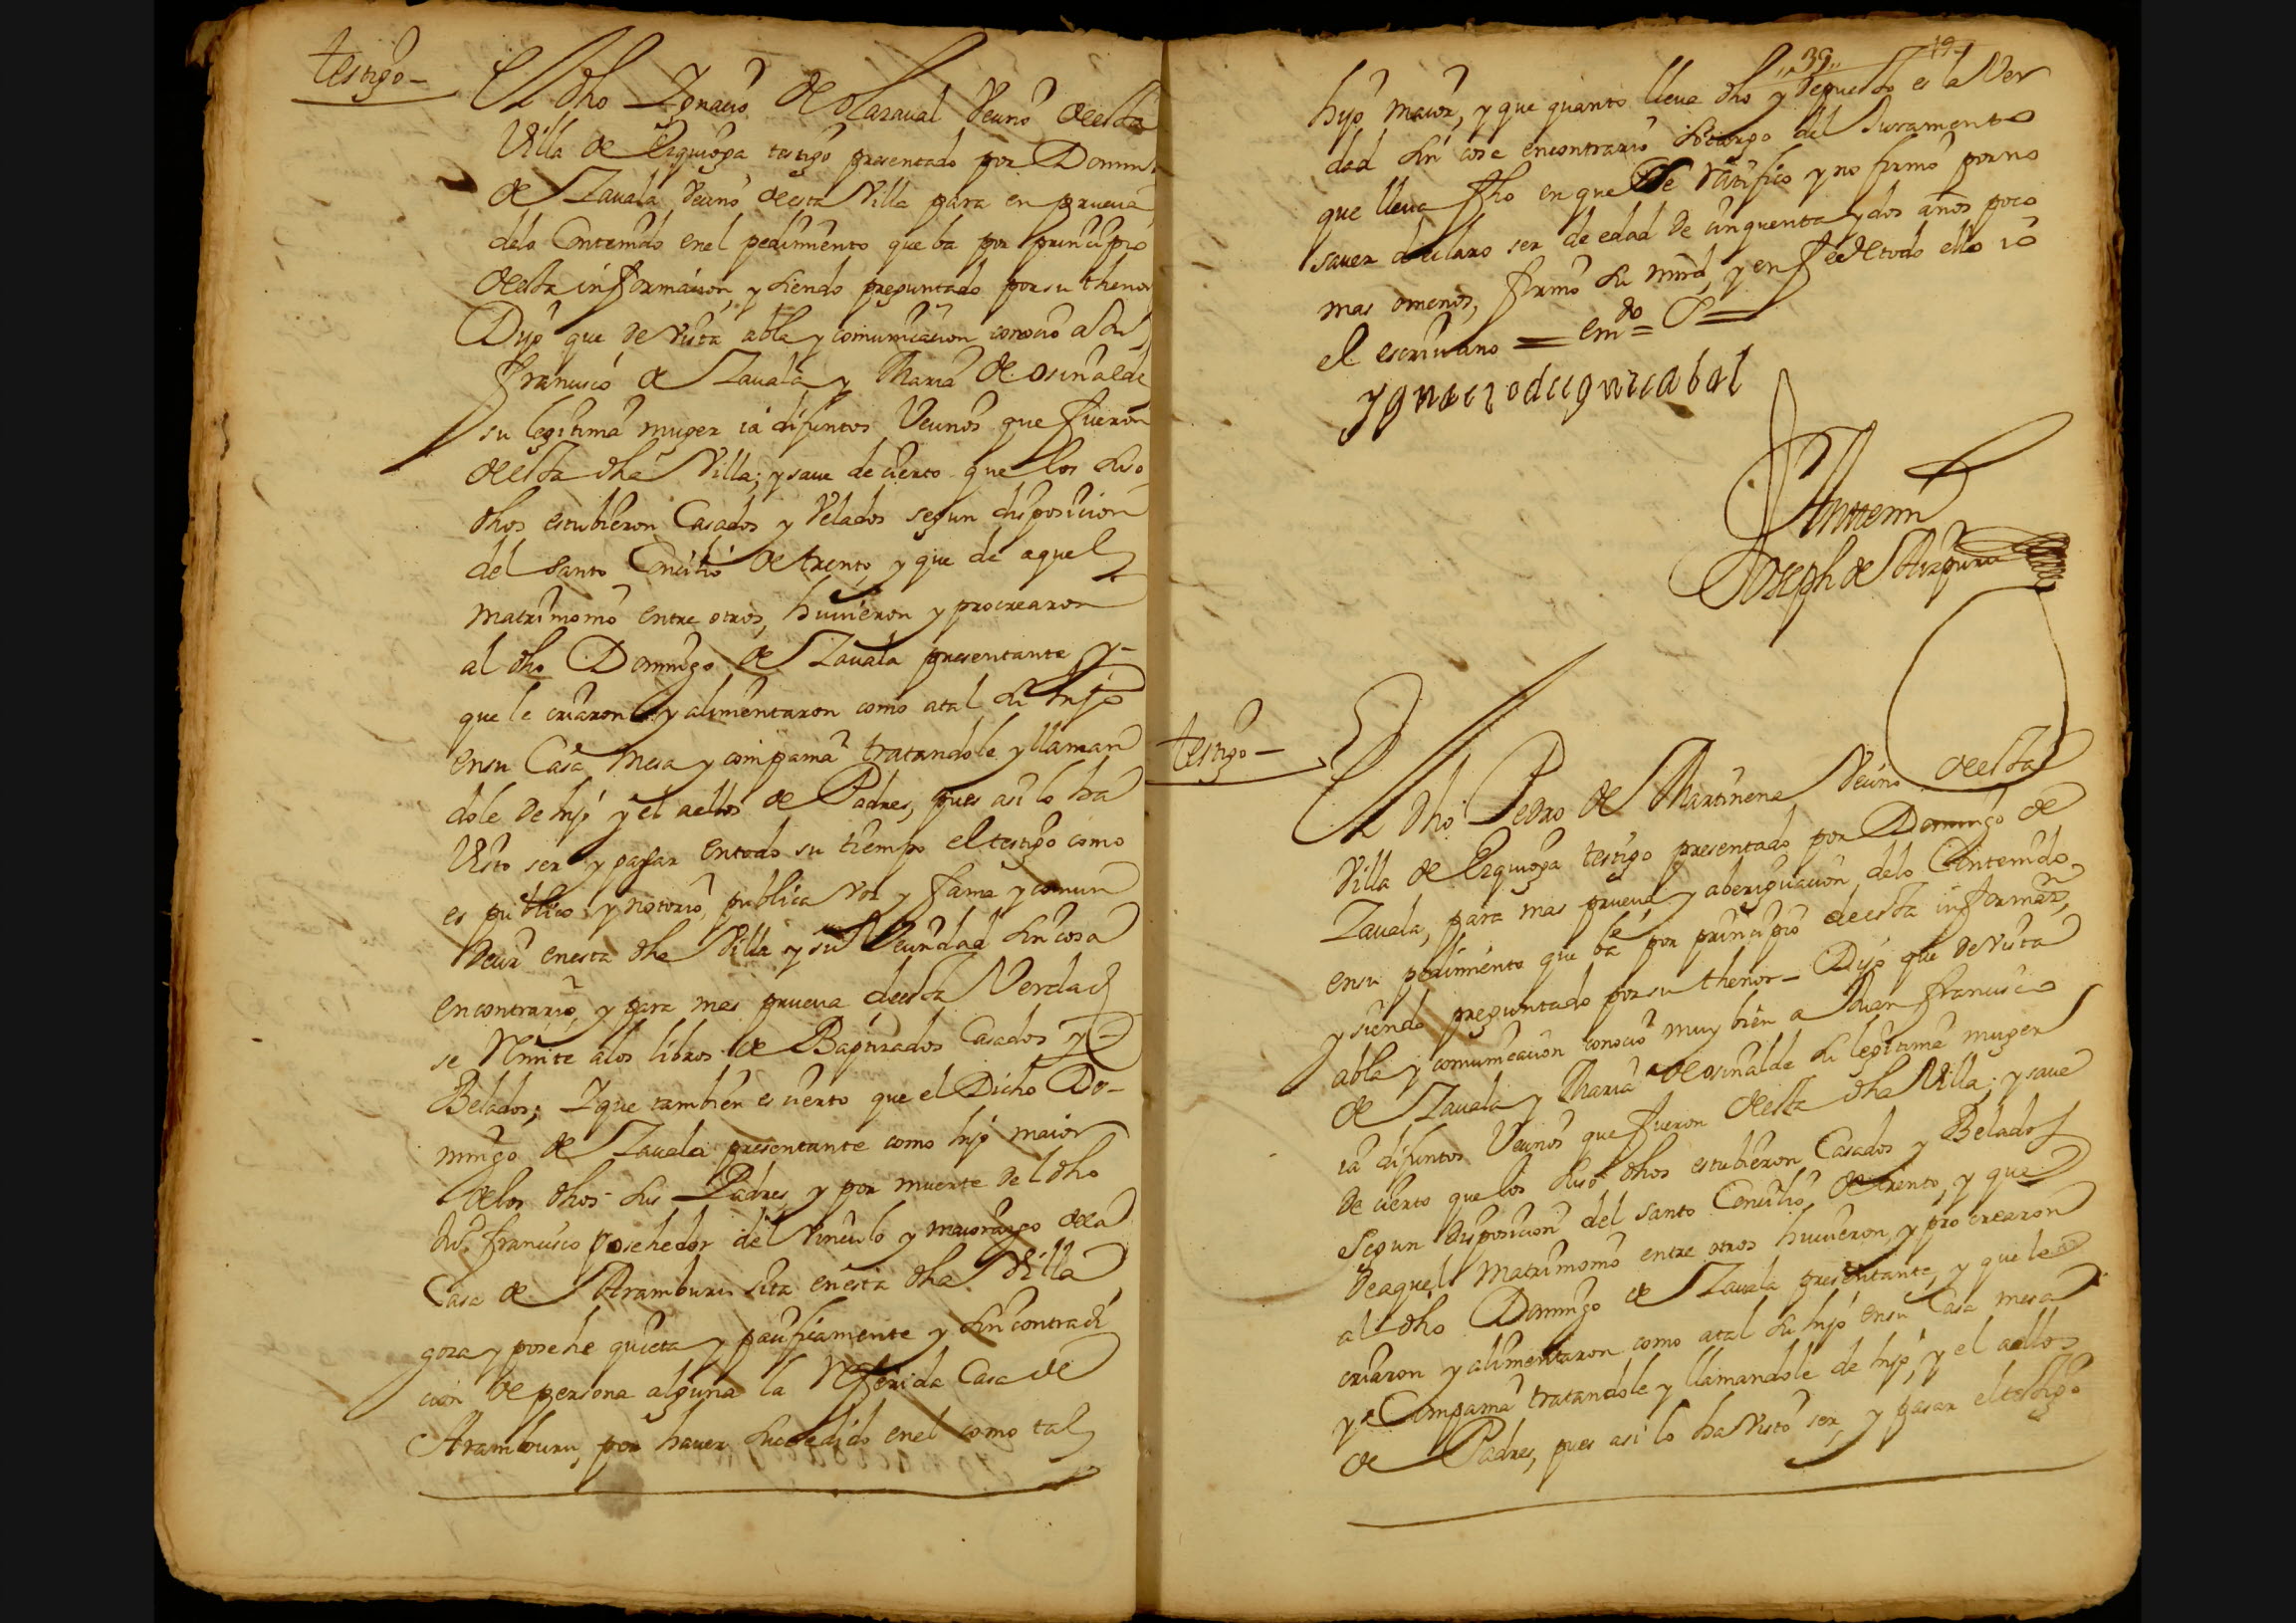 testigo
El dho Ygnacio de Olazaval Vecino deesta
Villa de Ezquioga testigo presentado por Domin.
de Zavala Vecino deesta Villa para en prueua
delo Contenido enel pedimiento que ba por principio
deesta informacion, y siendo preguntado por su thenor
Dijo que de vista abla y comunicacion conocio a Ju
francisco de Zauala y Maria de osinalde
su legitima muger ia difuntos Vecinos que fueron
deesta dha Villa; y saue de cierto que los suso
dhos estubieron Casados y Velados segun disposicion
del santo Concilio de trento, y que de aquel
matrimonio entre otros, huuieron y procrearon
al dho Domingo de Zauala presentante y
que le criaron y alimentaron como atal su hijo
ensu Casa mesa y compania tratandole y llaman
dole de hijo y el aellos de Padres, pues asi lo ha
Visto ser y pasar entodo su tiempo el testigo como
es publico y notorio, publica voz y fama y comun
decir enesta dha Villa y su Vecindad sin cosa
encontrario, y para mas prueua deesta Verdad
se remite alos libros de Baptizados Casados y
Belados; Y que tambien es cierto que el Dicho Do-
mingo de Zauala presentante como hijo maior
delos dhos sus Padres, y por muerte del dho
Ju. francisco posehedor del vinculo y maiorazgo dela
Casa de Aramburu sita enesta dha Villa
goza y posehe quieta y pacificamente y sin contradi
cion de persona alguna la referida Casa de
Aramburu, por hauer sucedido enel como tal
39
hijo maior, y que quanto lleua dho y depuesto es la Ver
dad sin cosa encontrario socargo del Juramento
que lleua fho en que se ratifico y no firmo por no
sauer declaro ser de edad de cinquenta y dos años poco
mas omenos, firmo su mrd, y en fee de todo ello io
el escriuano = em.do =
Antemi
Joseph de Aizpuru
testigo
El dho Pedro de Martinena Vecino deesta
Villa de Ezquioga testigo presentado por Domingo de
Zauala, para mas prueua y aberiguacion delo Contenido
ensu pedimiento que ba por principio deesta informan,
y siendo preguntado por su thenor Dijo que de vista
abla y comunicacion conocio muy bien a Juan francisco
de Zauala y Maria de osinalde su legitima muger
ia difuntos Vecinos que fueron deesta dha Villa; y saue
de cierto que los suso dhos estubieron Casados y Belados
segun disposicion del santo Concilio de trento, y que
deaquel Matrimonio entre otros huuieron, y procrearon
al dho Domingo de Zauala presentante, y que le
criaron y alimentaron como atal su hijo ensu Casa mesa
y Compania tratandole y llamandole de hijo, y el aellos
de Padres, pues asi lo ha visto ser, y pasar el testigo